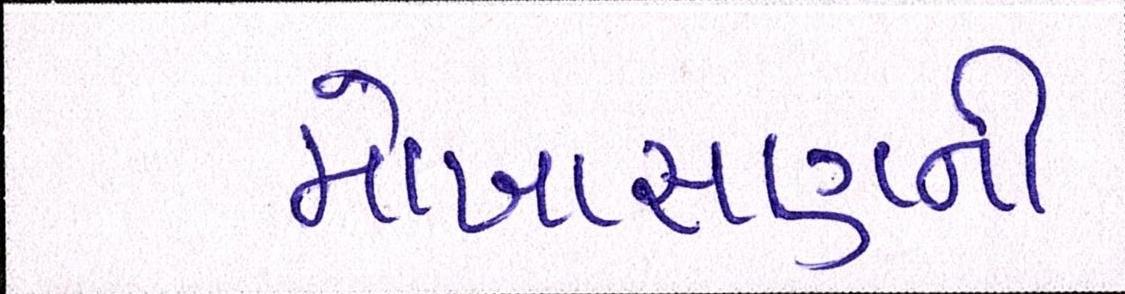 મોખાસણની